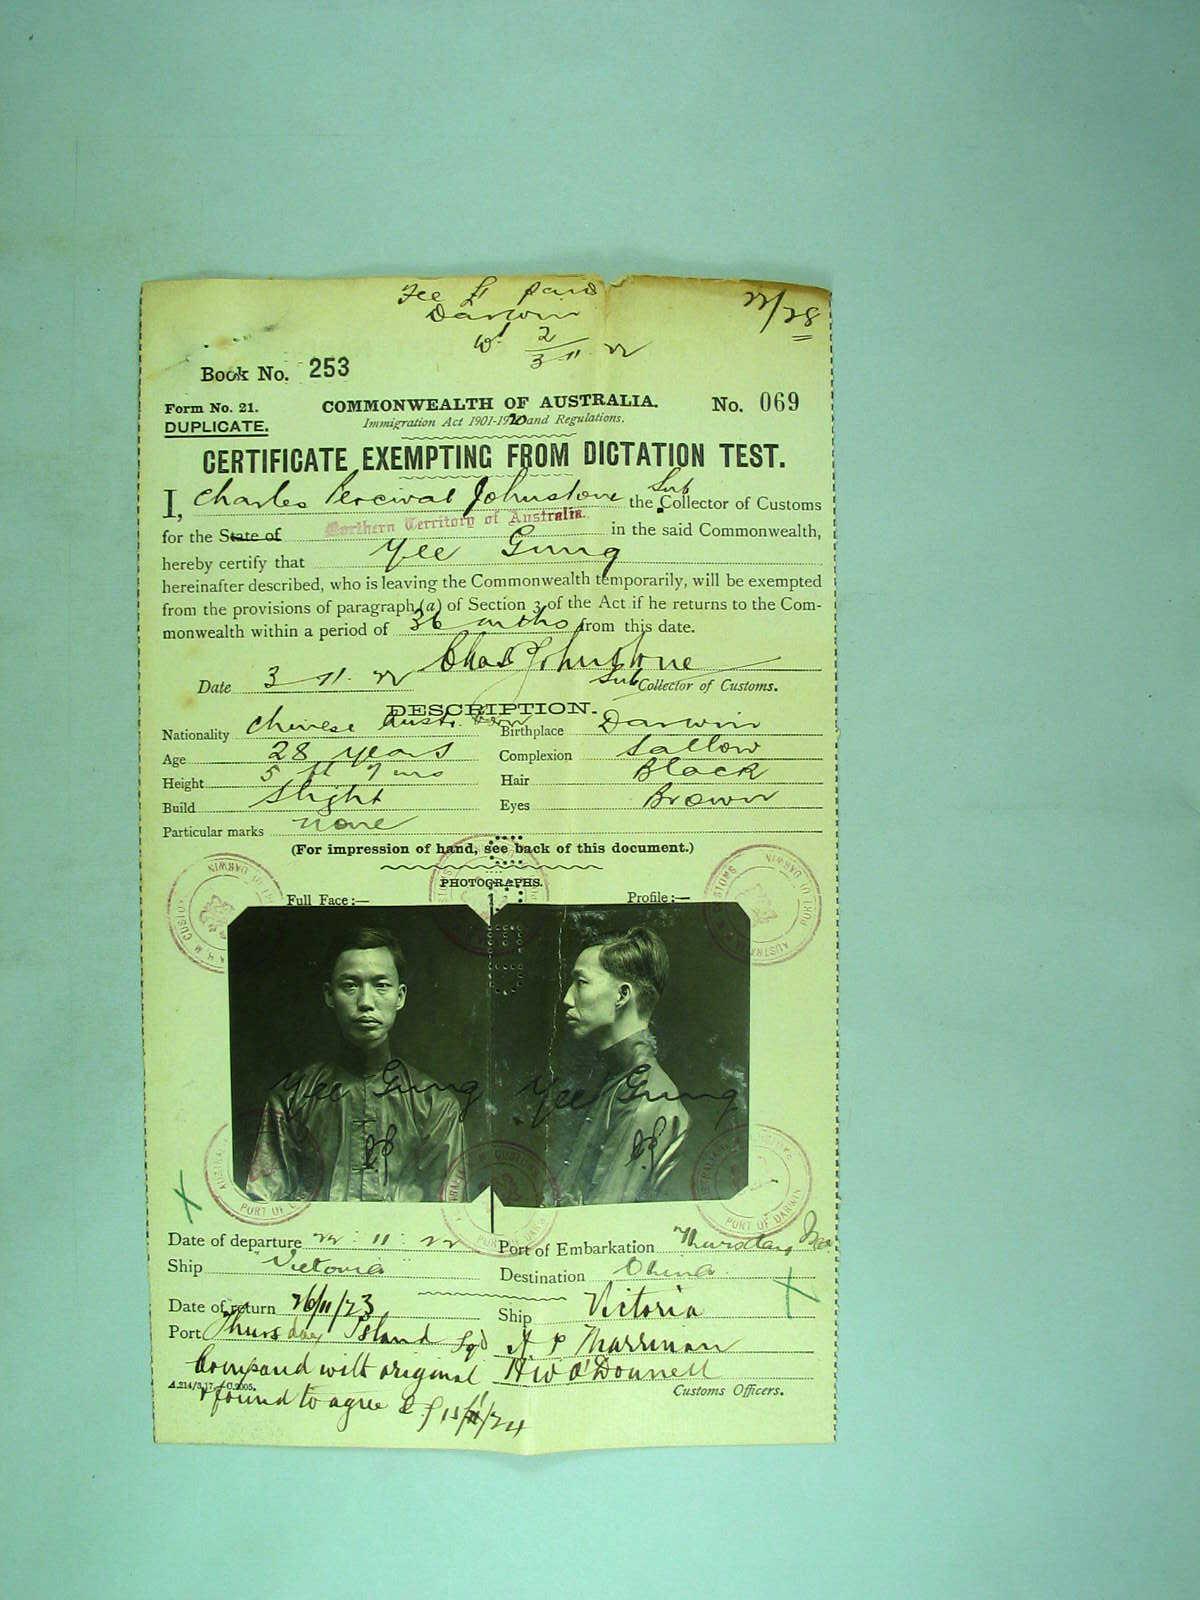 Fee £1 paid
Darwin
22/28
2
3 11 22
Book No. 253
Form No. 21.
COMMONWEALTH OF AUSTRALIA.
No. 069
DUPLICATE.
Immigration Act 1901-1920 and Regulations.
CERTIFICATE EXEMPTING FROM DICTATION TEST.
I, Charles Percival Johnstone the Sub Collector of Customs
for the State of Northern Territory of Australia. in the said Commonwealth,
hereby certify that Yee Gung
hereinafter described, who is leaving the Commonwealth temporarily, will be exempted
from the provisions of paragraph (a) of Section 3 of the Act if he returns to the Com-
monwealth within a period of 36 mths from this date.
Chas P Johnstone
Date 3 11 22 Sub Collector of Customs.
DESCRIPTION.
Nationality Chinese Austr. Born Birthplace Darwin
Age 28 years Complexion Sallow
Height 5 ft 7 ins Hair Black
Build Slight Eyes Brown
Particular marks none
(For impression of hand, see back of this document.)
PHOTOGRAPHS.
Full Face:— Profile:—
Yee Gung Yee Gung
PORT OF DARWIN
Date of departure 22 : 11 : 22 Port of Embarkation Thursday Isd
Ship Victoria Destination China
Date of return 26/11/23 Ship Victoria
Port Thursday Island Sgd A P Marriman
Compared with original H W O'Donnell
& found to agree
A.214/3.17.—C.2005. Customs Officers.